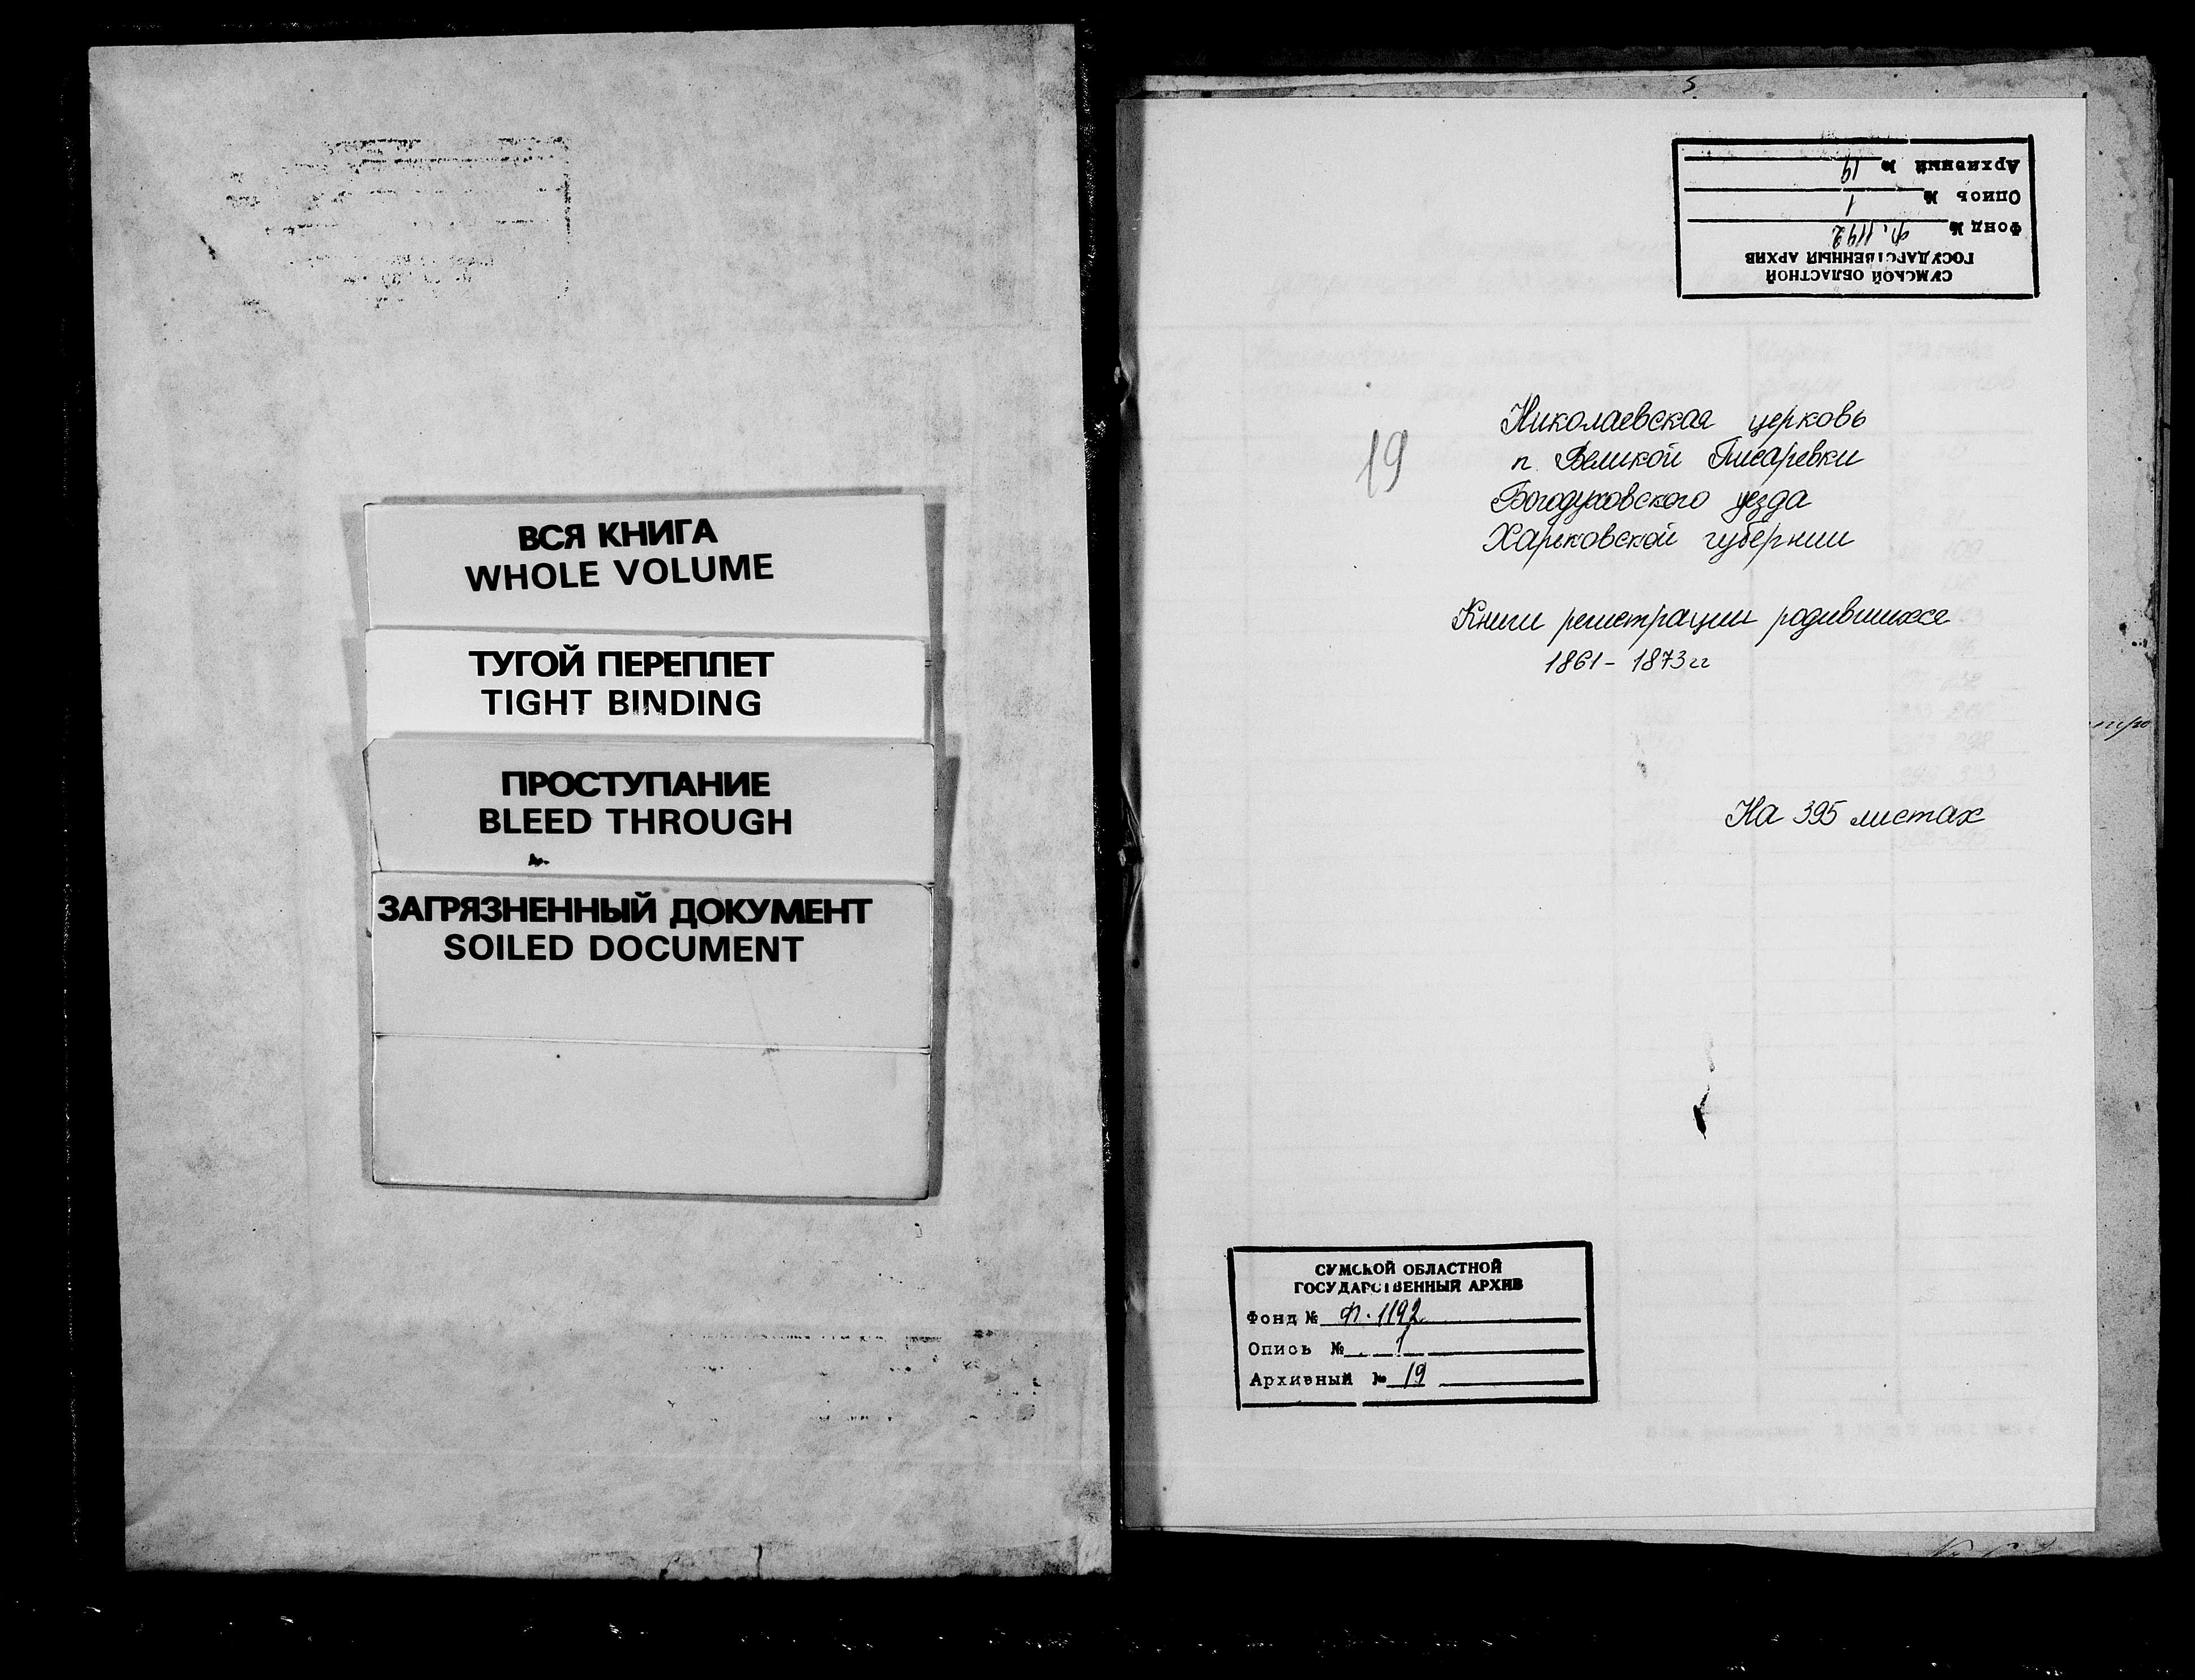 ВСЯ КНИГА
WHOLE VOLUME
ТУГОЙ ПЕРЕПЛЕТ
TIGHT BINDING
ПРОСТУПАНИЕ
BLEED THROUGH
ЗАГРЯЗНЕННЫЙ ДОКУМЕНТ
SOILED DOCUMENT
СУМСКОЙ ОБЛАСТНОЙ
ГОСУДАРСТВЕННЫЙ АРХИВ
Фонд № Ф. 1192
Опись № 1
Архивный № 19
19
Николаевская церковь
п. Великой Писаревки
Богодуховского уезда
Харьковской губернии
Книги регистрации родившихся
1861 - 1873 гг
На 395 листах
СУМСКОЙ ОБЛАСТНОЙ
ГОСУДАРСТВЕННЫЙ АРХИВ
Фонд № Ф. 1192
Опись № 1
Архивный № 19